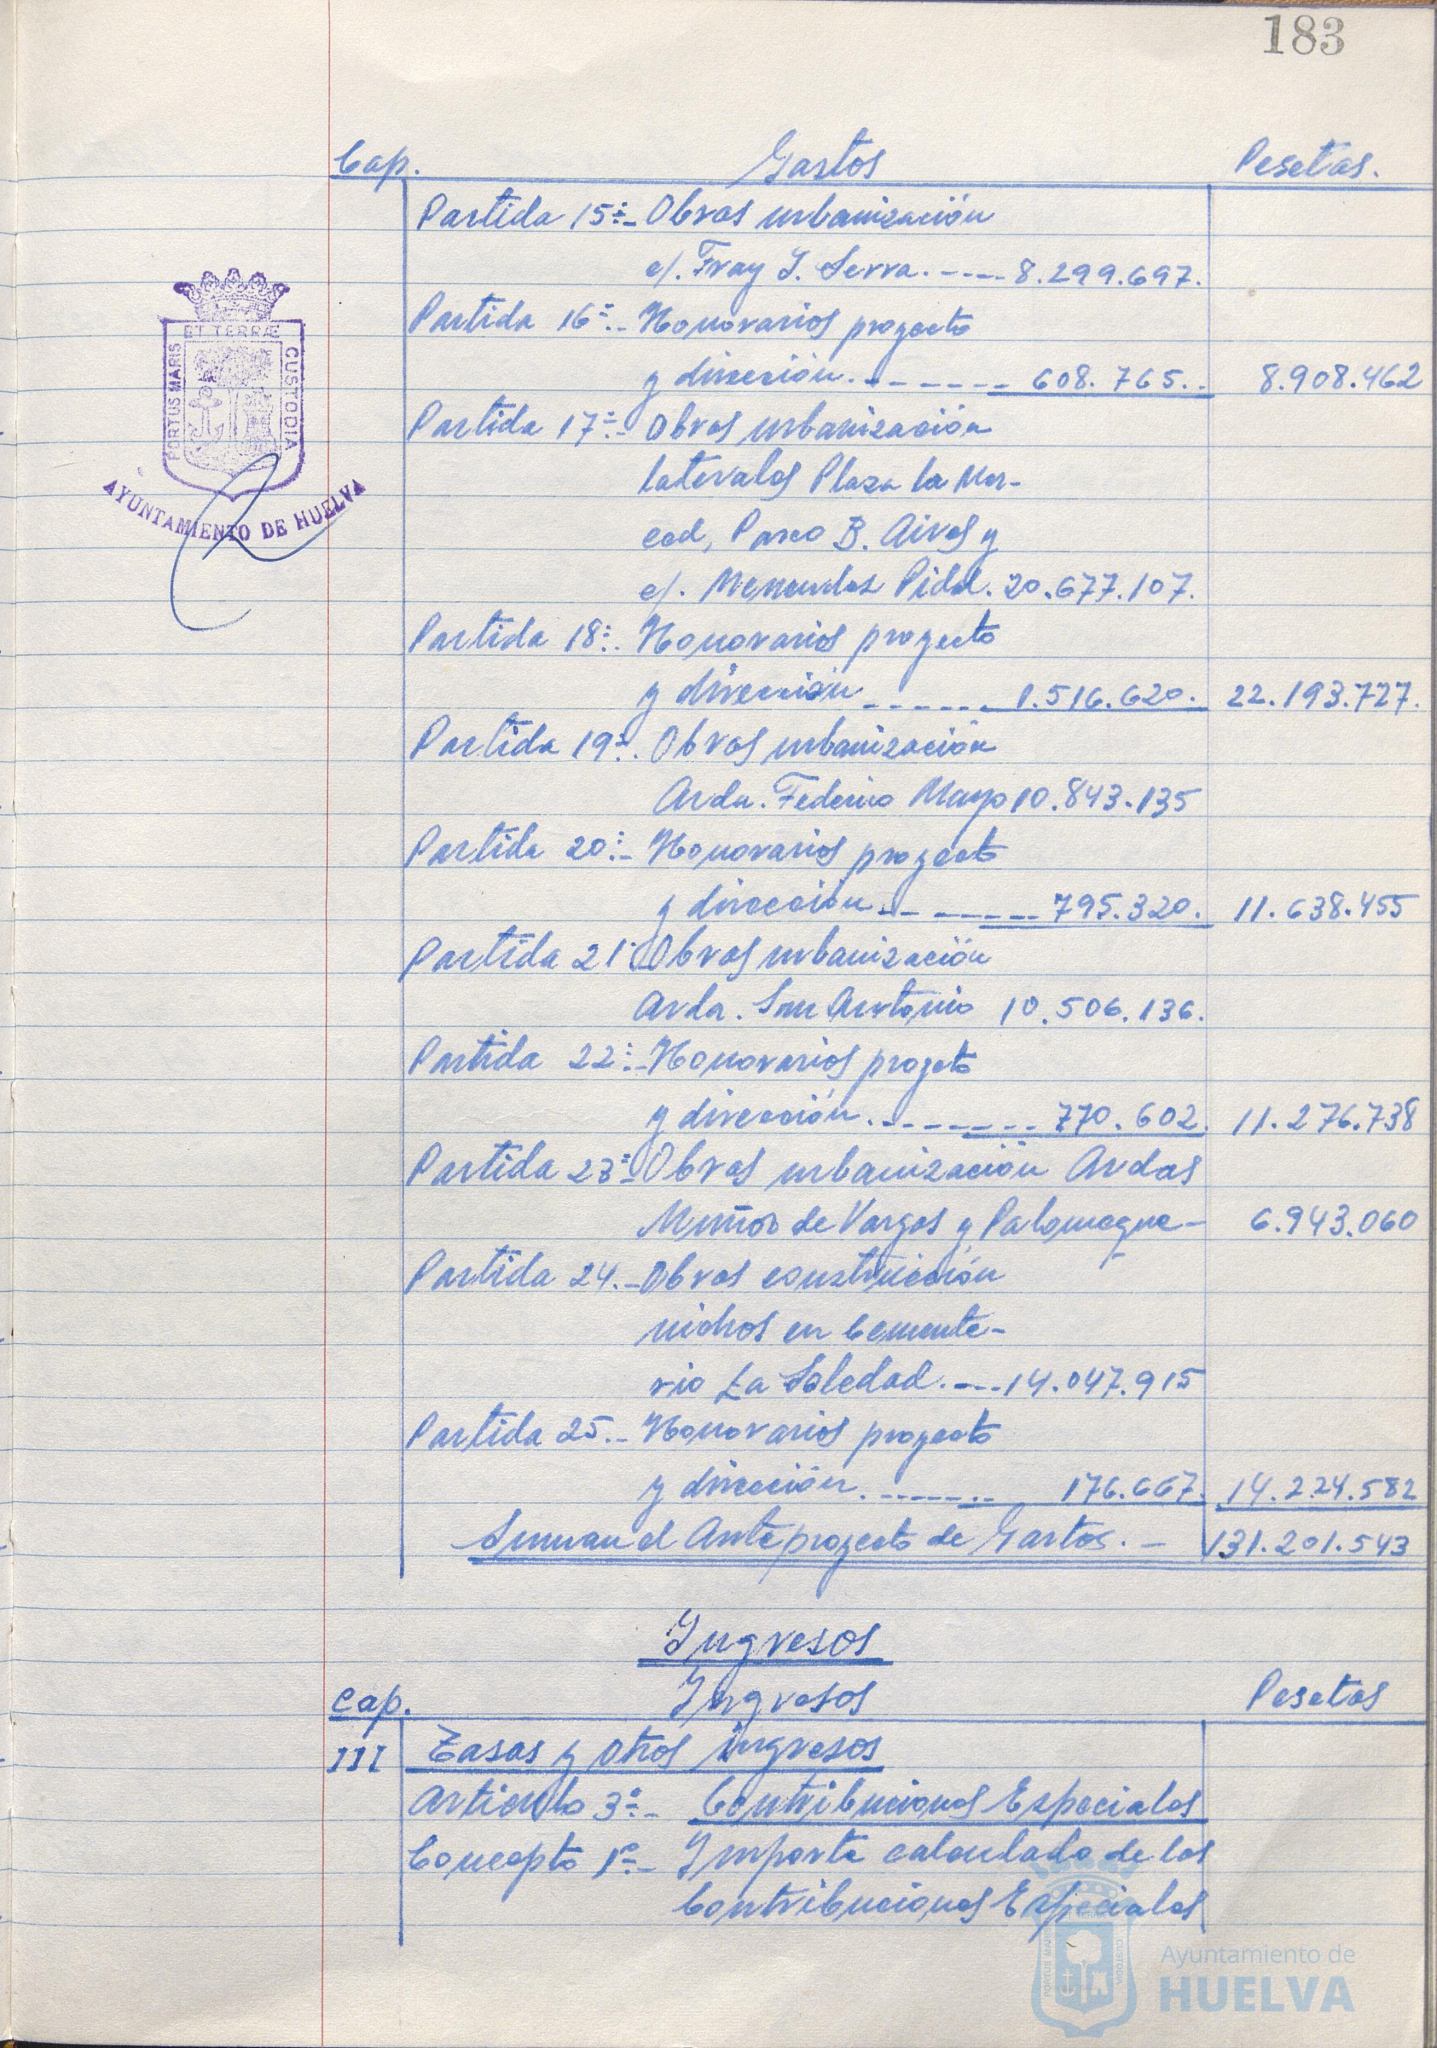 183
Cap. Gastos Pesetas.
Partida 15ª.- Obras urbanización
c/. Fray J. Serra.---- 8.299.697.
Partida 16ª.- Honorarios proyecto
y dirección.------- 608.765.. 8.908.462
Partida 17ª.- Obras urbanización
laterales Plaza la Mer-
ced, Paseo B. Aires y
c/. Menendez Pidal. 20.677.107.
Partida 18ª.- Honorarios proyecto
y dirección------ 1.516.620. 22.193.727.
Partida 19ª.- Obras urbanización
Avda. Federico Mayo 10.843.135
Partida 20ª.- Honorarios proyecto
y dirección.------- 795.320. 11.638.455
Partida 21ª.- Obras urbanización
Avda. San Antonio 10.506.136.
Partida 22ª.- Honorarios proyeto
y dirección.-------- 770.602. 11.276.738
Partida 23ª.- Obras urbanización Avdas
Muñoz de Vargas y Palomeque- 6.943.060
Partida 24.- Obras construcción
nichos en Cemente-
rio La Soledad.---14.047.915
Partida 25.- Honorarios proyecto
y dirección.------- 176.667. 14.224.582
Suman el Anteproyecto de Gastos.- 131.201.543
Ingresos
Cap. Ingresos Pesetas
III Tasas y otros ingresos
Artículo 3º.- Contribuciones Especiales
Concepto 1º.- Importe calculado de las
Contribuciones Especiales
PORTUS MARIS ET TERRÆ CUSTODIA
AYUNTAMIENTO DE HUELVA
Ayuntamiento de
HUELVA